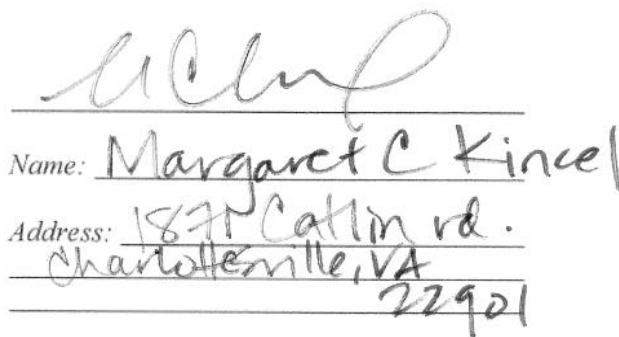 Name: Margaret C Kincel
Address: Catlin rd.
Charlottesville, VA
22901